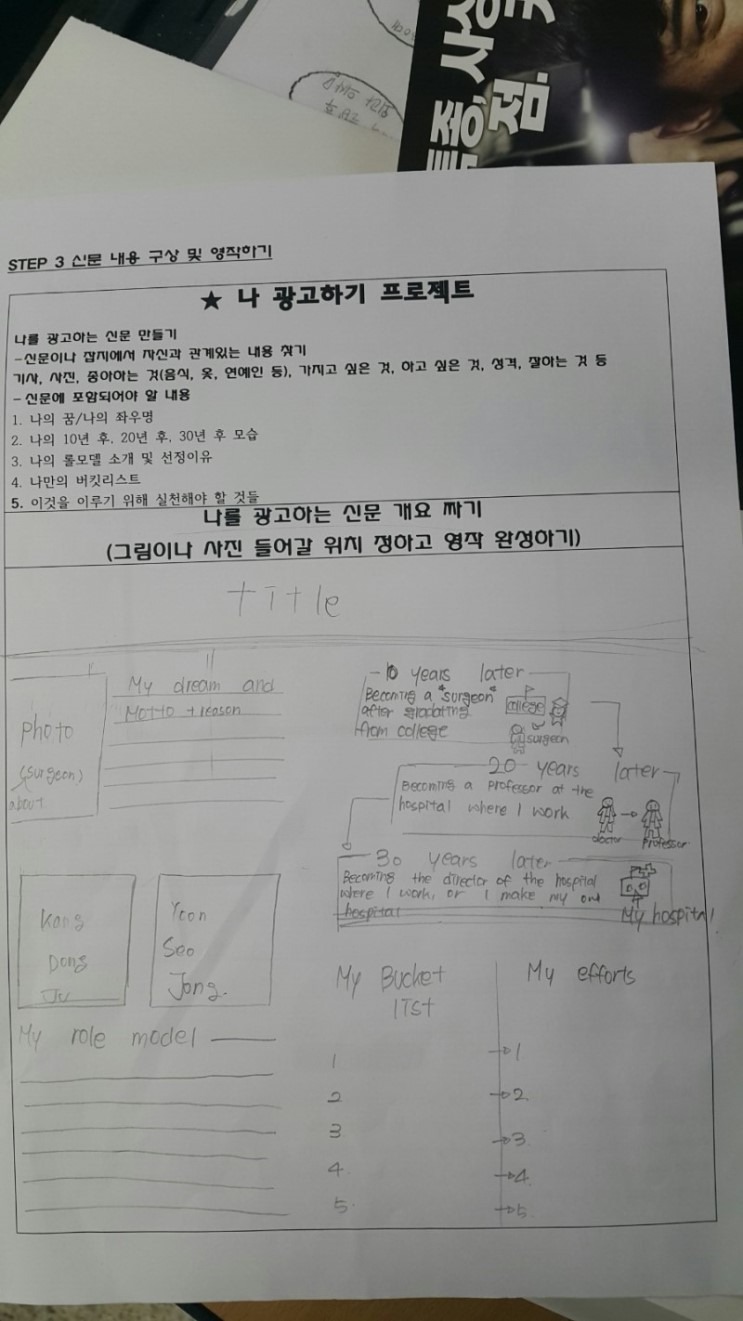 STEP 3 신문 내용 구상 및 영작하기
★ 나 광고하기 프로젝트
나를 광고하는 신문 만들기
-신문이나 잡지에서 자신과 관계있는 내용 찾기
기사, 사진, 좋아하는 것(음식, 옷, 연예인 등), 가지고 싶은 것, 하고 싶은 것, 성격, 잘하는 것 등
- 신문에 포함되어야 할 내용
1. 나의 꿈/나의 좌우명
2. 나의 10년 후, 20년 후, 30년 후 모습
3. 나의 롤모델 소개 및 선정이유
4. 나만의 버킷리스트
5. 이것을 이루기 위해 실천해야 할 것들
나를 광고하는 신문 개요 짜기
(그림이나 사진 들어갈 위치 정하고 영작 완성하기)
title
Photo
(surgeon)
about
My dream and
Motto + reason
10 years later
Becoming a "surgeon"
after gradating
from college
college
surgeon
20 years later
Becoming a professor at the
hospital where I work
doctor
Professor
30 years later
Becoming the director of the hospital
where I work, or I make my own
hospital
My hospital
Kong
Dong
Ju
Yoon
Seo
Jong.
My role model
My Bucket
list
1
2
3
4.
5.
My efforts
1
2.
3.
4.
5
점.